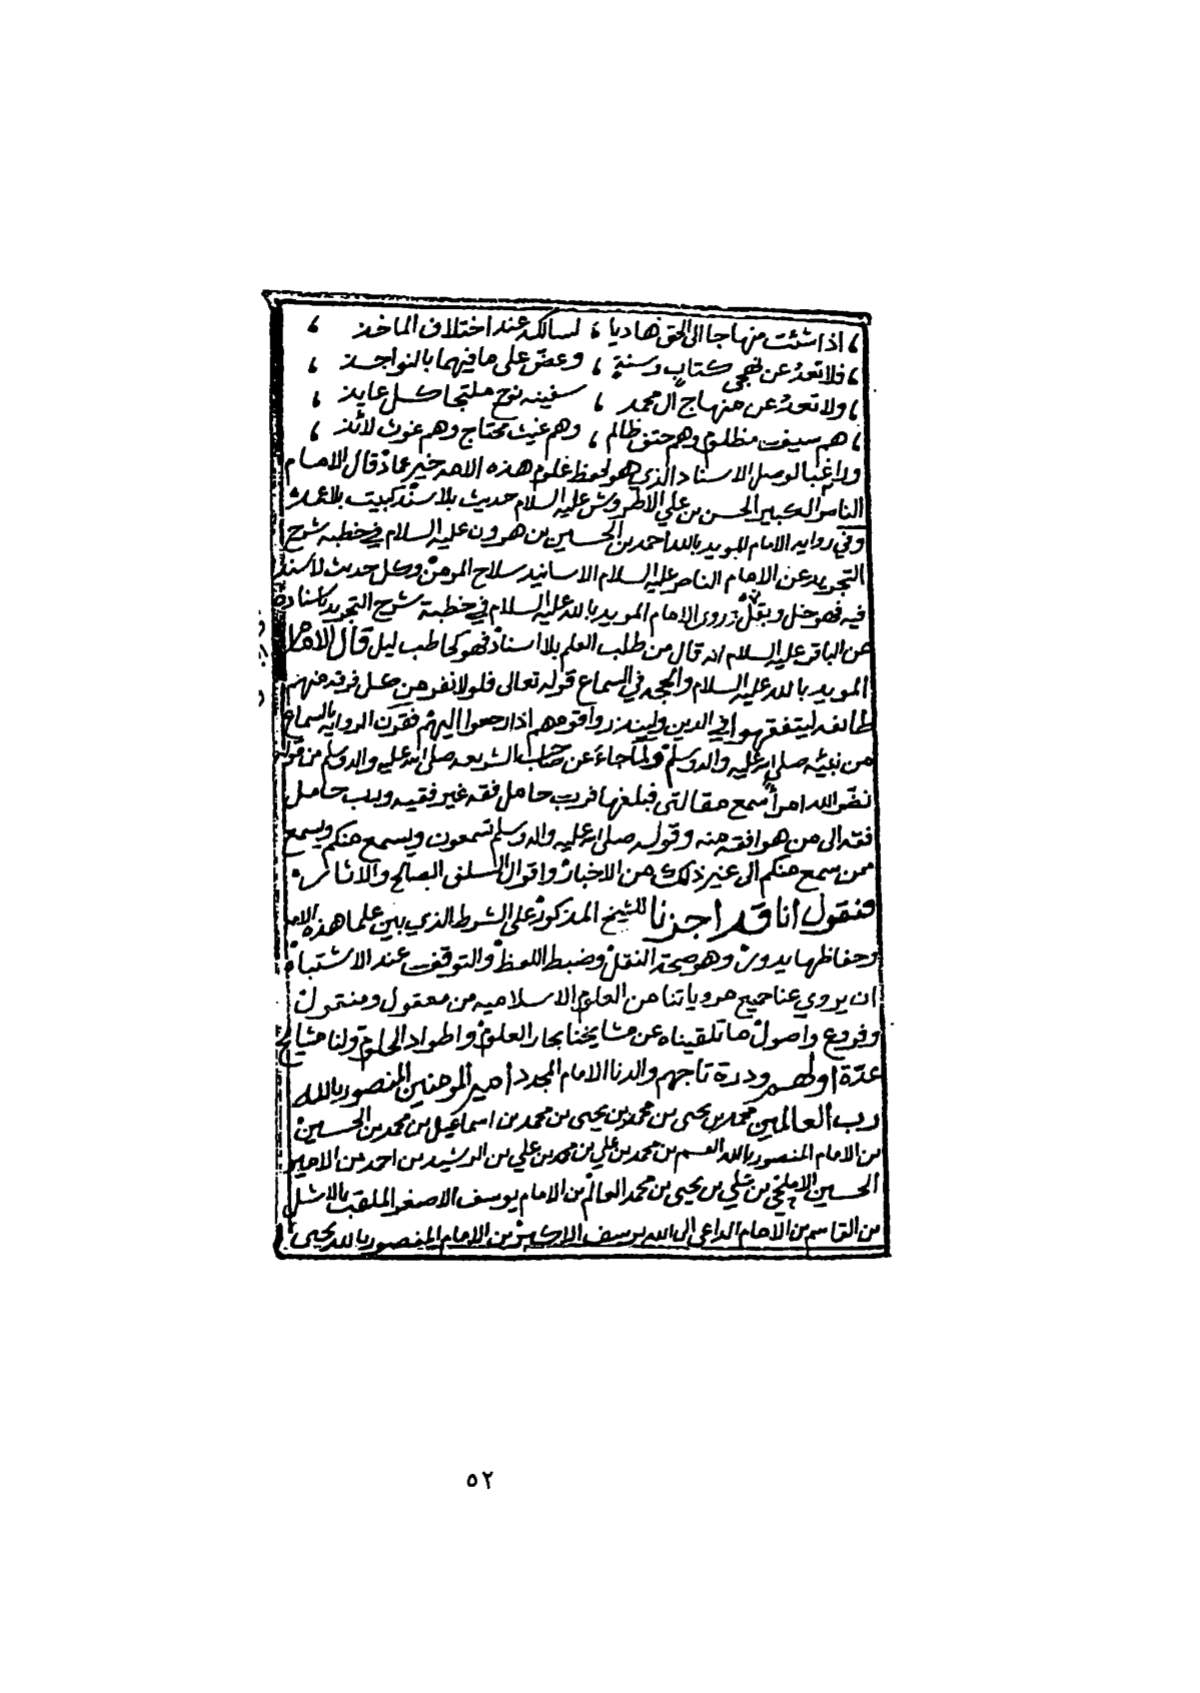 ، اذا شئت منهاجا الى الحق هاديا ، لسالكه عند اختلاف الماخذ ،
، فلا تعدُ عن نهجي كتاب وسنة ، وعض على ما فيهما بالنواجذ ،
، ولا تعدُ عن منهاج آل محمد ، سفينه نوح ملتجا كل عايذ ،
، هم سيف مظلوم وهم حتف ظالم ، وهم غيث محتاج وهم غوث لائذ ،
وراغبا لوصل الاسناد الذي هو لحفظ علوم هذه الامه خير عماد قال الامام
الناصر الكبير الحسن بن علي الاطروش عليه السلام حديث بلا سند كبيت بلا عمد
وفي روايه الامام المويد بالله احمد بن الحسين بن هرون عليه السلام في خطبه شرح
التجريد عن الامام الناصر عليه السلام الاسانيد سلاح المومن وكل حديث لا سند
فيه فهو خل وبقل وروى الامام المويد بالله عليه السلام في خطبة شرح التجريد باسناده
عن الباقر عليه السلام انه قال من طلب العلم بلا اسناد فهو كحاطب ليل قال الامام
المويد بالله عليه السلام والحجه في السماع قوله تعالى فلولا نفر من كل فرقه منهم
طائفه ليتفقهوا في الدين ولينذروا قومهم اذا رجعوا اليهم فقرن الروايه بالسماع
من نبيّه صلى الله عليه واله وسلم ولما جاء عن صاحب الشريعه صلى الله عليه واله وسلم من قوله
نضّر الله امرأ سمع مقالتي فبلغها فرب حامل فقه غير فقيه ورب حامل
فقه الى من هو افقه منه وقوله صلى الله عليه واله وسلم تسمعون ويسمع منكم ويسمع
ممن سمع منكم الى غير ذلك من الاخبار واقوال السلف الصالح والاثار
فنقول انا قد اجزنا للشيخ المذكور على الشرط الذي بين علما هذه الامه
وحفاظها يدور وهو صحة النقل وضبط اللفظ والتوقف عند الاشتباه
ان يروي عنا جميع مروياتنا من العلوم الاسلاميه من معقول ومنقول
وفروع واصول ما تلقيناه عن مشايخنا بحار العلوم واطواد الحلوم ولنا مشايخ
عدّة اولهم ودرة تاجهم والدنا الامام المجدد امير المومنين المنصور بالله
رب العالمين محمد بن يحيى بن محمد بن يحيى بن محمد بن اسماعيل بن محمد بن الحسين
بن الامام المنصور بالله القسم بن محمد بن علي بن محمد بن علي بن الرشيد بن احمد بن الامير
الحسين الاملحي بن علي بن يحيى بن محمد العالم بن الامام يوسف الاصغر الملقب بالاشل
بن القاسم بن الامام الداعي الى الله يوسف الاكبر بن الامام المنصور بالله يحيى
٥٢